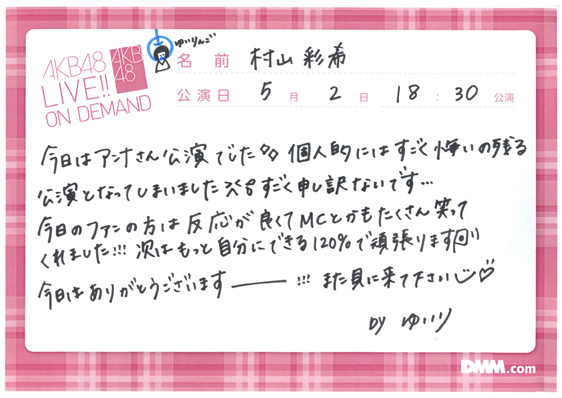 AKB48
LIVE!!
ON DEMAND
AKB
48
ゆいりんご
名前 村山彩希
公演日 5月2日 18:30公演
今日はアンナさん公演でした 個人的にはすごく悔いの残る
公演となってしまいました すごく申し訳ないです…
今日のファンの方は反応が良くてMCとかもたくさん笑って
くれました!!! 次はもっと自分にできる120%で頑張ります
今日はありがとうございますー!!! また見に来て下さい♡
by ゆいり
DMM.com